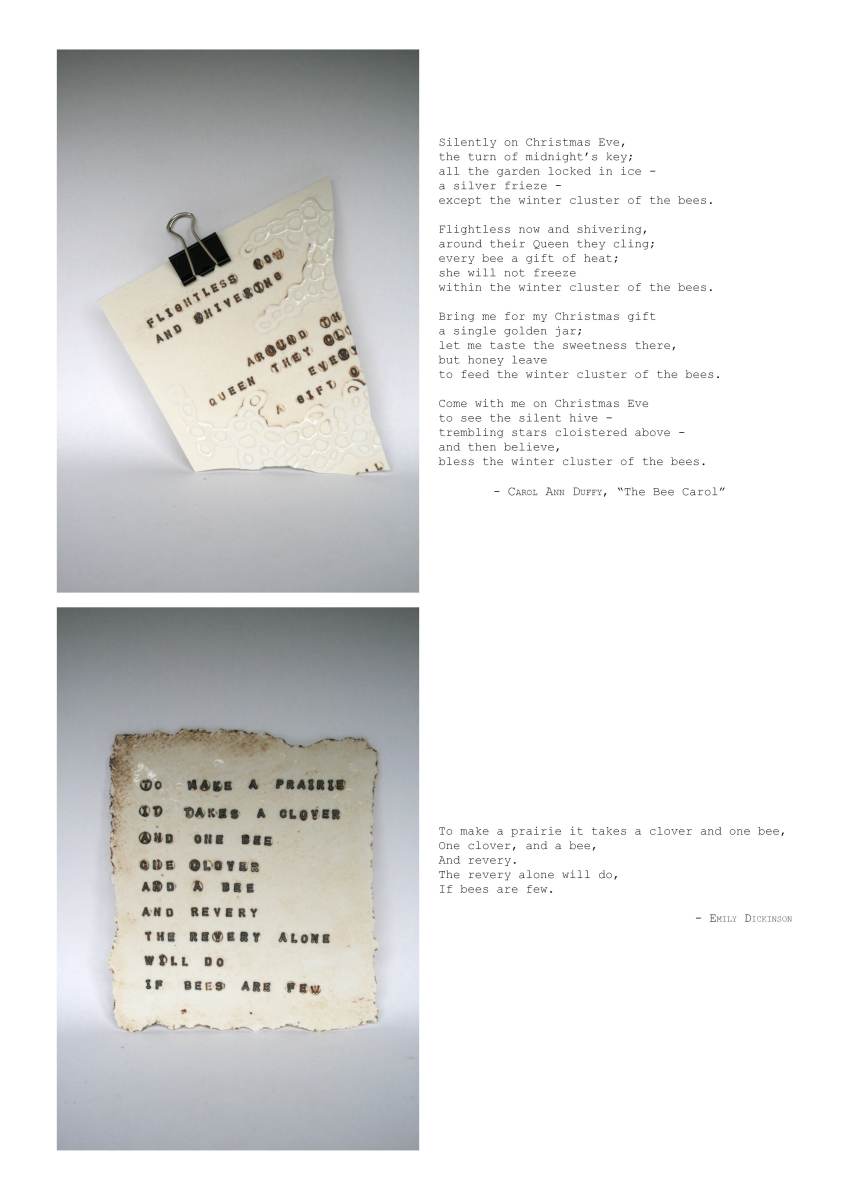 FLIGHTLESS NOW
AND SHIVERING
AROUND TH
QUEEN THEY CLO
EVERY
A GIFT O
Silently on Christmas Eve,
the turn of midnight’s key;
all the garden locked in ice -
a silver frieze -
except the winter cluster of the bees.
Flightless now and shivering,
around their Queen they cling;
every bee a gift of heat;
she will not freeze
within the winter cluster of the bees.
Bring me for my Christmas gift
a single golden jar;
let me taste the sweetness there,
but honey leave
to feed the winter cluster of the bees.
Come with me on Christmas Eve
to see the silent hive -
trembling stars cloistered above -
and then believe,
bless the winter cluster of the bees.
- CAROL ANN DUFFY, “The Bee Carol”
TO MAKE A PRAIRIE
IT TAKES A CLOVER
AND ONE BEE
ONE CLOVER
AND A BEE
AND REVERY
THE REVERY ALONE
WILL DO
IF BEES ARE FEW
To make a prairie it takes a clover and one bee,
One clover, and a bee,
And revery.
The revery alone will do,
If bees are few.
- EMILY DICKINSON